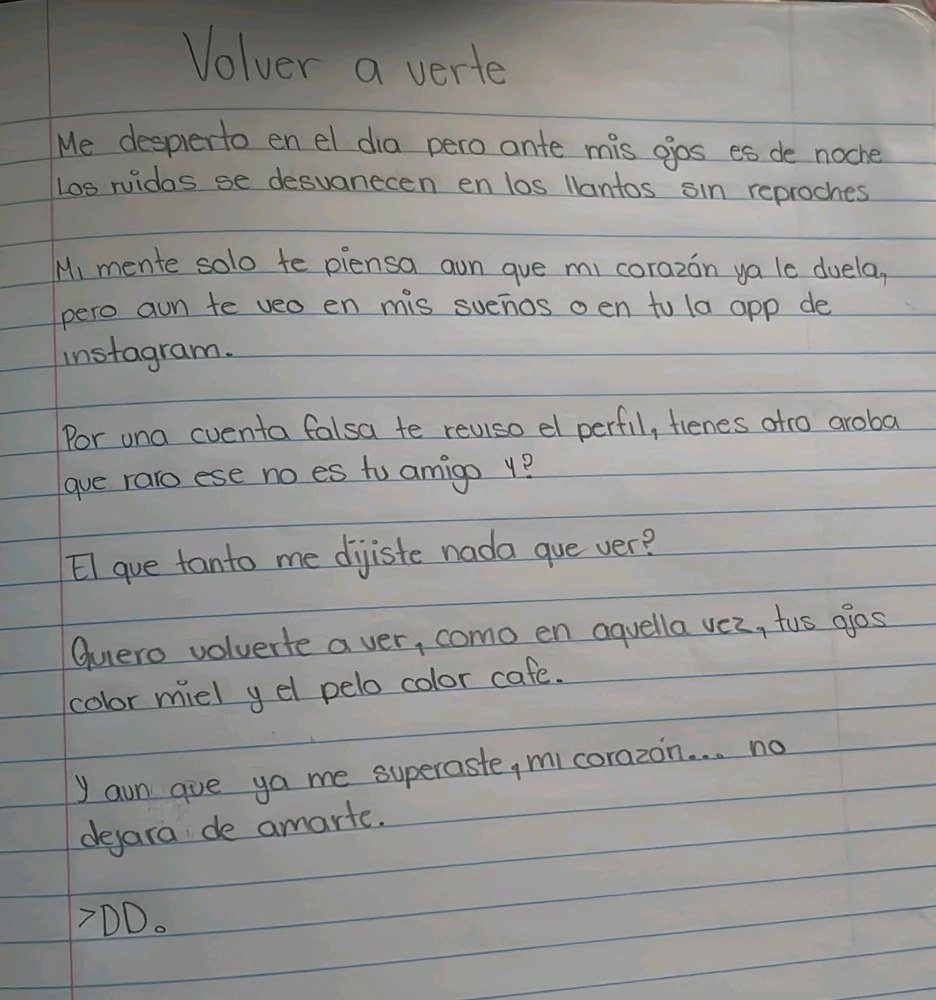 Volver a verte
Me despierto en el dia pero ante mis ojos es de noche
Los ruidos se desvanecen en los llantos sin reproches
Mi mente solo te piensa aun que mi corazón ya le duela,
pero aun te veo en mis sueños o en tu la app de
instagram.
Por una cuenta falsa te reviso el perfil, tienes otro aroba
que raro ese no es tu amigo y?
El que tanto me dijiste nada que ver?
Quiero volverte a ver, como en aquella vez, tus ojos
color miel y el pelo color cafe.
Y aun que ya me superaste, mi corazón... no
dejara de amarte.
>DD.